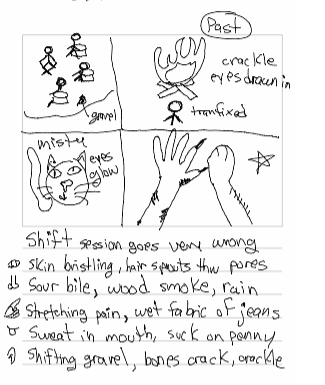 Past
crackle
eyes drawn in
gravel
tranfixed
misty
eyes
glow
Shift session goes very wrong
skin bristling, hair sprouts thru pores
Sour bile, wood smoke, rain
Stretching pain, wet fabric of jeans
Sweat in mouth, suck on penny
Shifting gravel, bones crack, crackle